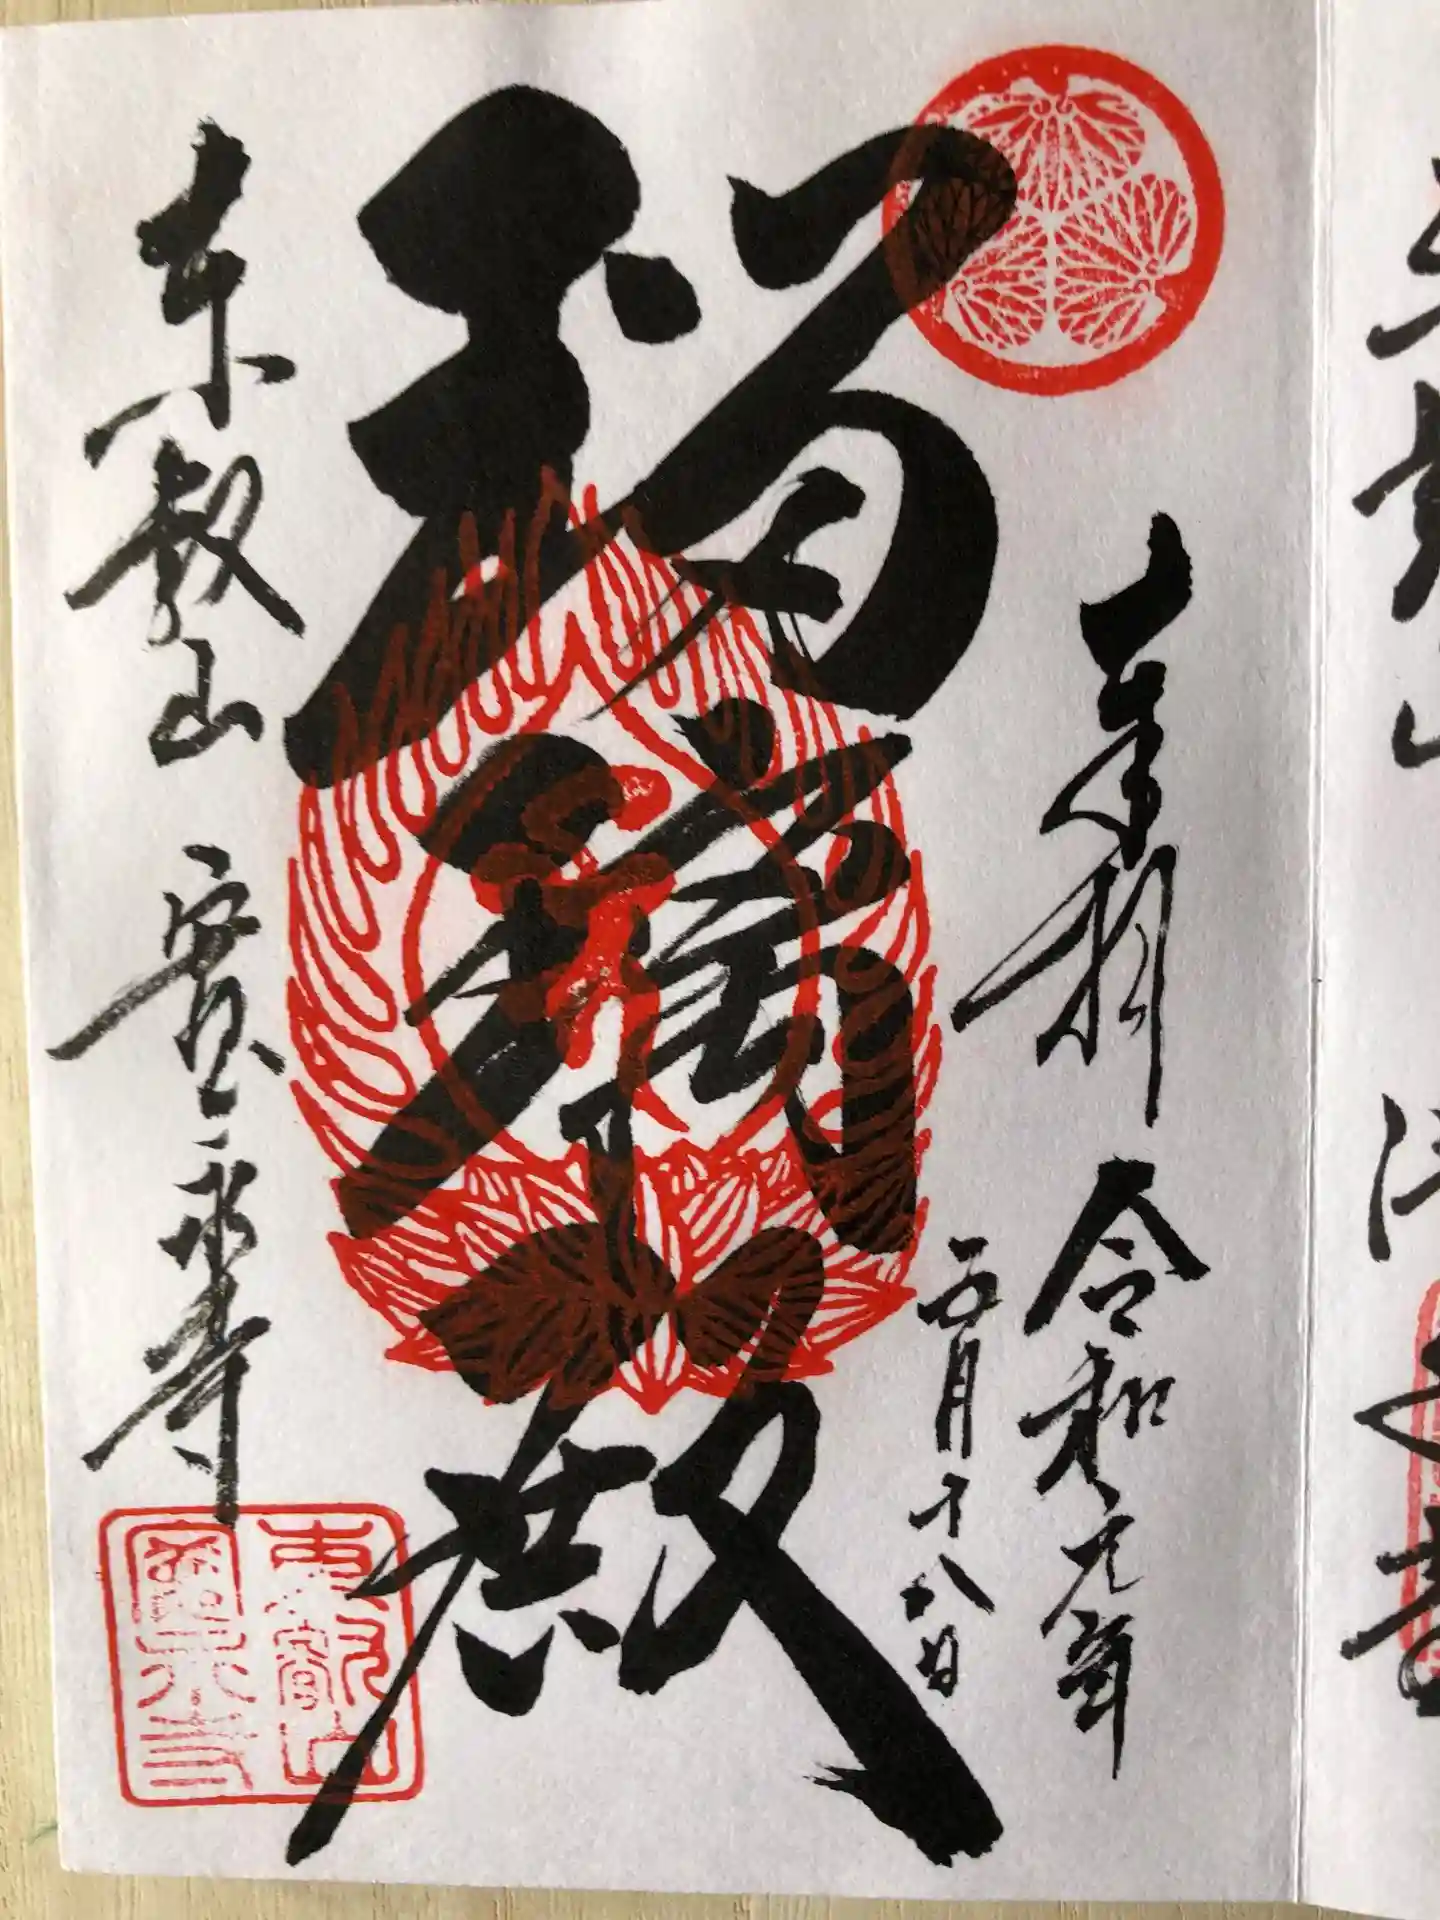 奉拝
令和元年
五月十八日
瑠璃殿
東叡山 寛永寺
東叡山
寛永寺